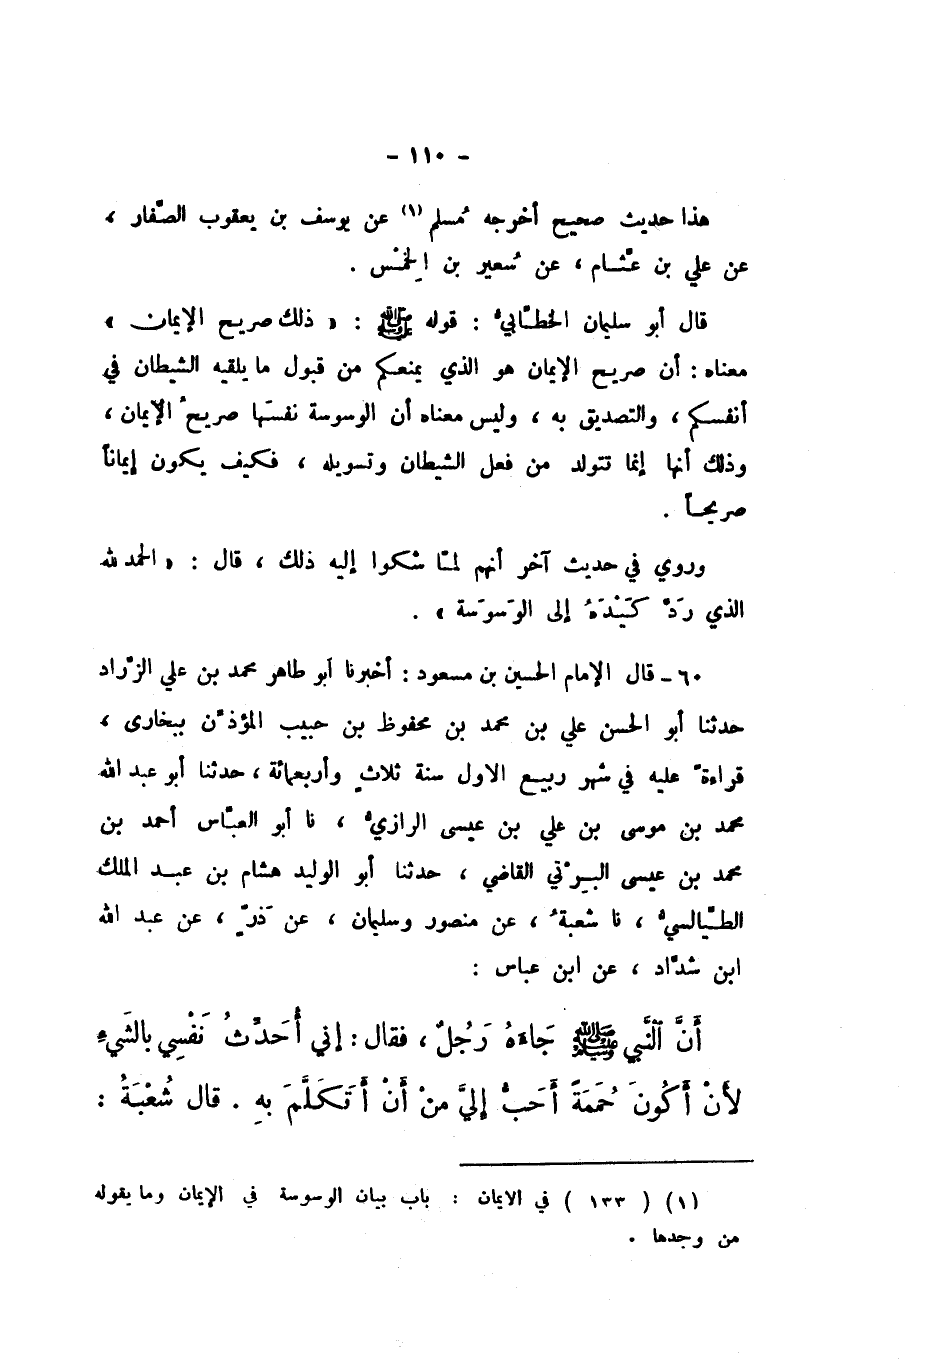 - ١١٠ -
هذا حديث صحيح أخرجه مُسلم (١) عن يوسف بن يعقوب الصَّفار ،
عن علي بن عَثَّام ، عن سُعير بن الخِمْس .
قال أبو سليمان الخطَّابيُّ : قوله ﷺ : « ذلك صريح الإيمان »
معناه : أن صريح الإيمان هو الذي يمنعكم من قبول ما يلقيه الشيطان في
أنفسكم ، والتصديق به ، وليس معناه أن الوسوسة نفسَها صريحُ الإيمان ،
وذلك أنها إنما تتولد من فعل الشيطان وتسويله ، فكيف يكون إيماناً
صريحاً .
وروي في حديث آخر أنهم لمَّا شكوا إليه ذلك ، قال : « الحمد لله
الذي رَدَّ كَيْدَهُ إلى الوَسوَسة » .
٦٠ - قال الإمام الحسين بن مسعود : أخبرنا أبو طاهر محمد بن علي الزرَّاد
حدثنا أبو الحسن علي بن محمد بن محفوظ بن حبيب المؤذِّن ببخارى ،
قراءةً عليه في شهر ربيع الاول سنة ثلاثٍ وأربعمائة ، حدثنا أبو عبد الله
محمد بن موسى بن علي بن عيسى الرازيُّ ، نا أبو العبَّاس أحمد بن
محمد بن عيسى البِرْتي القاضي ، حدثنا أبو الوليد هشام بن عبد الملك
الطيَّالسيُّ ، نا شعبةُ ، عن منصور وسليمان ، عن ذَرٍّ ، عن عبد الله
ابن شدَّاد ، عن ابن عباس :
أَنَّ النَّبي ﷺ جَاءَهُ رَجُلٌ ، فقال : إني أُحَدِّثُ نَفْسِي بالشَيءِ
لأَنْ أَكُونَ حُمَمَةً أَحَبُّ إليَّ منْ أَنْ أَتَكَلَّمَ بهِ . قال شُعْبَةُ :
(١) ( ١٣٣ ) في الايمان : باب بيان الوسوسة في الإيمان وما يقوله
من وجدها .